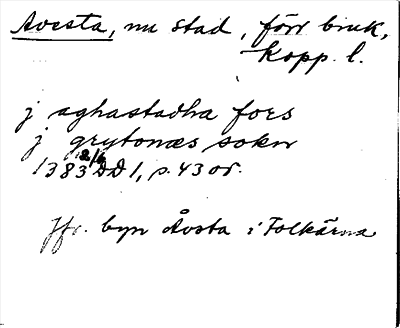 Avesta, nu stad, förr bruk,
Kopp. l.
j aghastadha fors
j grytonæs sokn
1383 2/6 DD 1, s. 43 or.
Jfr. byn Åvsta i Folkärna